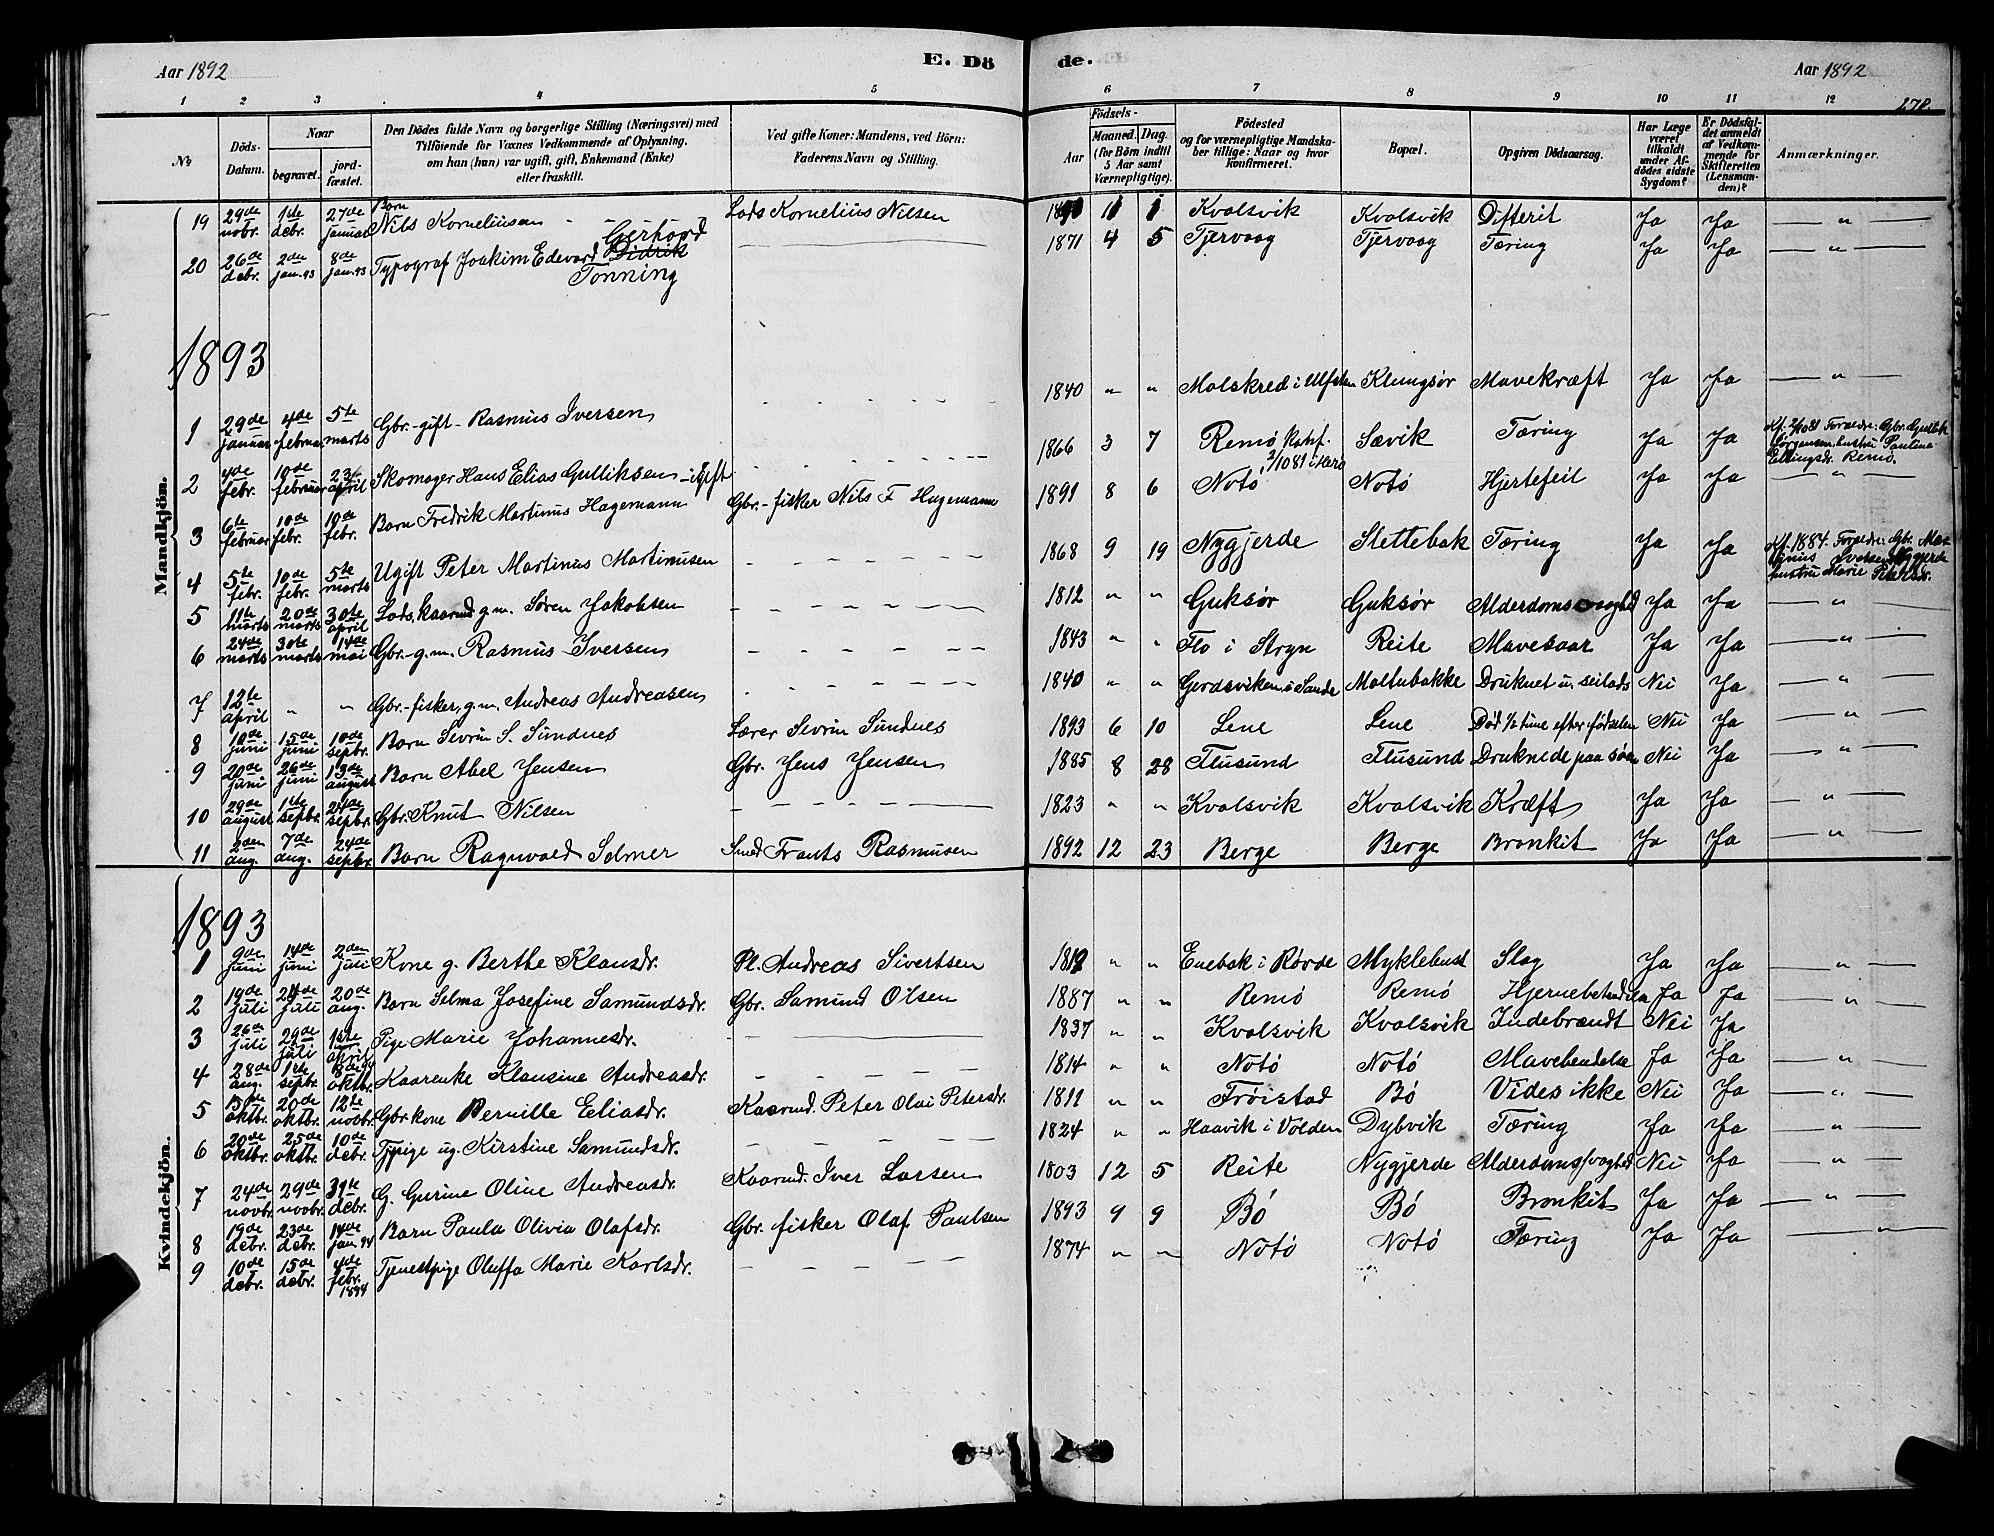 Aar 1892
E. Dö
de.
Aar 1892
278.
1 2 3 4 5 6 7 8 9 10 11 12
No
Döds-Datum.
Naar
begravet.
jord-fæstet.
Den Dödes fulde Navn og borgerlige Stilling (Næringsvei) med
Tilföiende for Voxnes Vedkommende af Oplysning,
om han (hun) var ugift, gift, Enkemand (Enke)
eller fraskilt.
Ved gifte Koner: Mandens, ved Börn:
Faderens Navn og Stilling.
Födsels-
Aar
Maaned.
Dag.
(for Börn indtil
5 Aar samt
Værnepligtige).
Födested
og for værnepligtige Mandska-
ber tillige: Naar og hvor
konfirmeret.
Bopæl.
Opgiven Dödsaarsag.
Har Læge
været
tilkaldt
under Af-
dödes sidste
Sygdom?
Er Dödsfal-
det anmeldt
af Vedkom-
mende for
Skifteretten
(Lensman-
den)?
Anmærkninger.
Mandkjön.
19 29de novbr. 1ste debr. 27de januar Barn Nils Korneliusen Lods Kornelius Nilsen 11 1 Kvalsvik Kvalsvik Difterit Ja Ja — " —
20 26de debr. 2den jan. 93 8de jan. 93 Typograf Joakim Edevard Didrik Gerhard Tønning 1871 4 5 Tjervaag Tjervaag Tæring Ja Ja — " —
1893
1 29de januar 4de februar 5te marts Gbr. gift Rasmus Iversen 1840 " " Molskred i Ulfsten Klungsør Mavekræft Ja Ja — " —
2 4de febr. 10de februar 23de april Skomager Hans Elias Gulliksen - ugift 1866 3 7 Remø Konf. 2/10 81 i Herø Sævik Tæring Ja Ja Kf. 2/10 81 Forældre: Gbr. Gullik Jørgensen, hustru Pauline Ellingsdr. Remø.
3 6te februar 10de febr. 10de febr. Barn Fredrik Martinus Hagemann Gbr.-fisker Nils F Hagemann 1891 8 6 Notø Notø Hjertefeil Ja Ja — " —
4 5te febr. 10de febr. 5te marts Ugift Peter Martinus Martinusen 1868 9 19 Nygjerde Stettebak Tæring Ja Ja Kf. 1884. Forældre: Gbr. Mar tinus Iversen Nygjerde hustru Marie Petersdr.
5 11te marts 20de marts 30te april Lods, kaarmd g.m. Søren Jakobsen 1812 " " Guksør Guksør Alderdomssvaghed Ja Ja — " —
6 24de marts 30te marts 14de mai Gbr.-g.m. Rasmus Iversen 1843 " " Flo i Stryn Reite Mavesaar Ja Ja — " —
7 12te april " " Gbr.-fisker, g.m. Andreas Andreasen 1840 " " Gerdsviken i Sande Moltubakke Druknet u. seilads Nei Ja — " —
8 10de juni 15de juni 10de sepbr. Barn Sevrin S. Sundnes Lærer Sevrin Sundnes 1893 6 10 Lene Lene Død 1/2 time efter fødselen Nei Ja — " —
9 20de juni 26de juni 13de august Barn Abel Jensen Gbr. Jens Jensen 1885 8 28 Flusund Flusund Druknede paa søen Nei Ja — " —
10 29de august 1ste sepbr. 24de sepbr. Gbr. Knut Nilsen 1823 " " Kvalsvik Kvalsvik Kræft Ja Ja — " —
11 2den aug. 7de aug. 24de sepbr. Barn Ragnvald Selmer Smed Frants Rasmusen 1892 12 23 Berge Berge Bronkit Ja Ja — " —
Kvindekjön.
1893
1 9de juni 14de juni 2den juli Kone g. Berthe Klausdr. Pl. Andreas Sivertsen " " Enebak i Rovde Myklebust Slag Ja Ja — " —
2 19de juli 24de juli 20de aug. Barn Selma Josefine Samundsdr. Gbr. Samund Olsen 1887 " " Remø Remø Ja Ja — " —
3 26de juli 29de juli 1ste april Pige Marie Johannesdr. 1837 " " Kvalsvik Kvalsvik Indebrændt Nei Ja
4 28de aug. 1ste sepbr. 8de oktbr. Kaarenke Klausine Andreasdr. 1814 " " Notø Notø Ja Ja — " —
5 15de oktbr. 20de oktbr. 12te novbr. Gbr kone Bernille Eliasdr. Kaarmd. Peter Olai Petersdr. " " Frøistad Bø Vides ikke Nei Ja — " —
6 20de oktbr. 25de oktbr. 10de debr. Tjpige ug. Kirstine Samundsdr. 1824 " " Haavik i Volden Dybvik Tæring Ja Ja — " —
7 24de novbr. 29de novbr. debr. G. Gurine Oline Andreasdr. Kaarmd. Iver Larsen 1803 12 5 Reite Nygjerde Alderdomssvaghed Nei Ja — " —
8 19de debr. 23de debr. 14de jan. 94 Barn Paula Olivia Olafsdr. Gbr. fisker Olaf Paulsen 1893 9 9 Bø Bø Bronkit Ja Ja — " —
9 10de debr. 15de debr. 4de febr. 1894 Tjenestpige Oluffa Marie Karlsdr. 1874 " " Notø Notø Tæring Ja Ja — " —